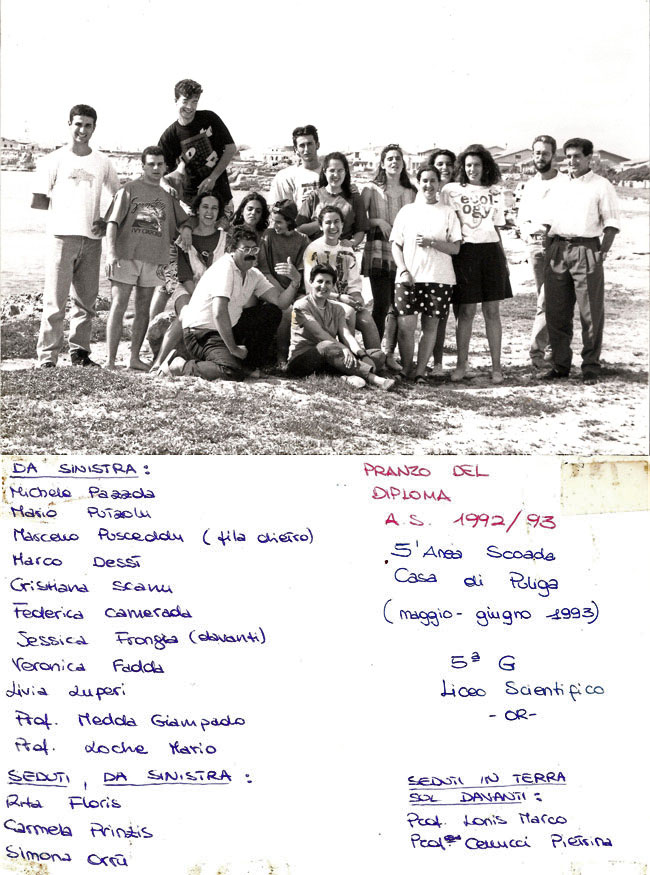 ecology
DA SINISTRA:
Michele Pazzola
Mario Puizolu
Marcello Pusceddu (fila dietro)
Marco Dessì
Cristiana Scanu
Federica Camerada
Jessica Frongia (davanti)
Veronica Fadda
Livia Luperi
Prof. Medda Giampaolo
Prof. Loche Mario
SEDUTI, DA SINISTRA:
Rita Floris
Carmela Prinzis
Simona Orrù
PRANZO DEL
DIPLOMA
A.S. 1992/93
5ª Area Scoada
Casa di Puliga
(maggio - giugno 1993)
5ª G
Liceo Scientifico
- OR -
SEDUTI IN TERRA
SUL DAVANTI:
Prof. Lonis Marco
Prof.ssa Cenucci Pietrina